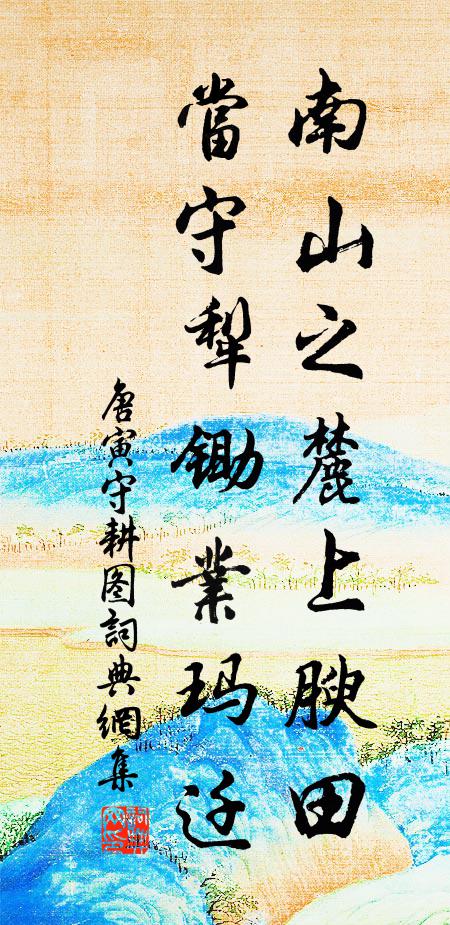 南山之麓上腴田
當守犁鋤業玛迁
唐寅守耕图詞典網集